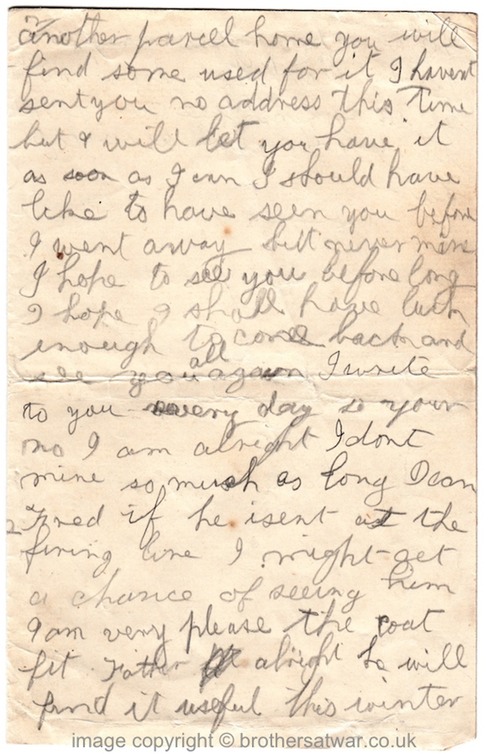 another parcel home you will
find some used for it I havent
sent you no address this time
but I will let you have it
as soon as I can I should have
like to have seen you before
I went away but never mine
I hope to see you before long
I hope I shall have luck
enough to come back and
see you all again I write
to you every day so your
no I am alright I dont
mine so much as long Dean
Fred if he isent at the
firing line I might get
a chance of seeing him
I am very please the coat
fit Father alright he will
find it useful this winter
image copyright © brothersatwar.co.uk